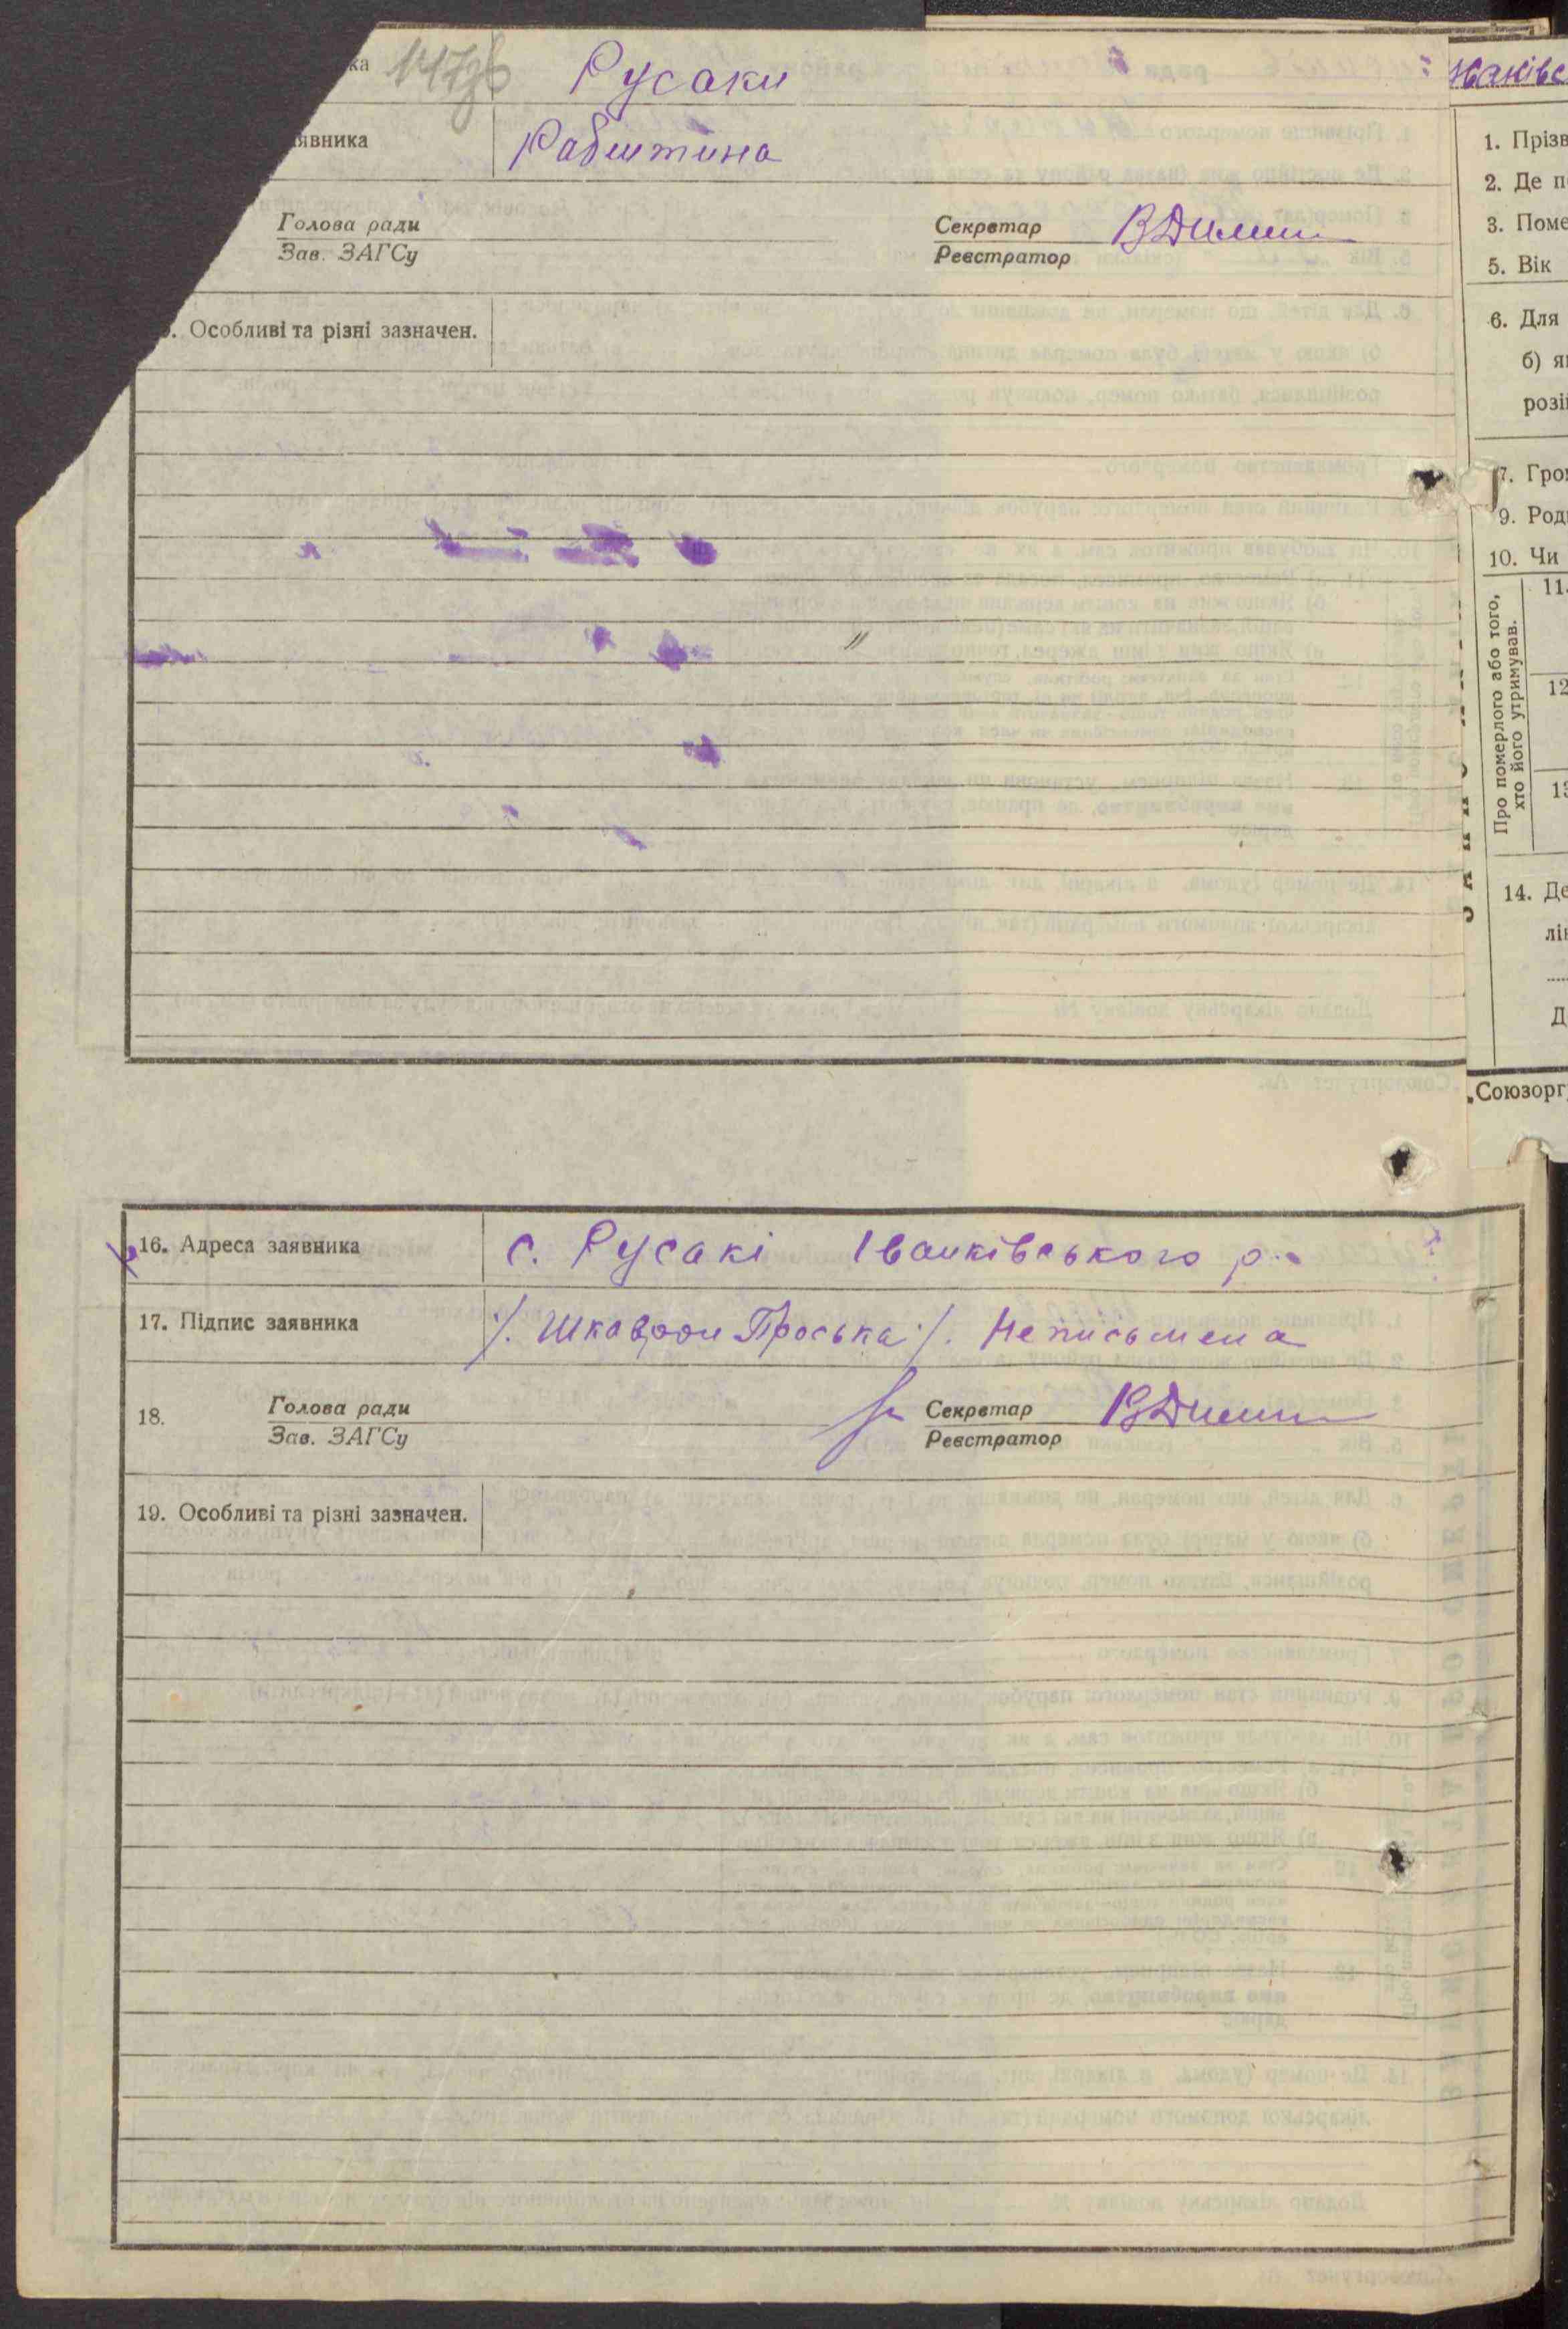 ка Русаки
явника Рабштина
Голова ради
Зав. ЗАГСу
Секретар
Реєстратор
. Особливі та різні зазначен.
"
16. Адреса заявника с. Русакі Іванківського р.
17. Підпис заявника Проська Неписьмена
18. Голова ради
Зав. ЗАГСу
Секретар
Реєстратор
19. Особливі та різні зазначен.
1. Прізв
2. Де п
3. Поме
5. Вік
6. Для
б) я
розі
7. Гро
9. Род
10. Чи
Про померлого або того,
хто його утримував.
11.
12
13
14. Де
лі
Д
„Союзорг